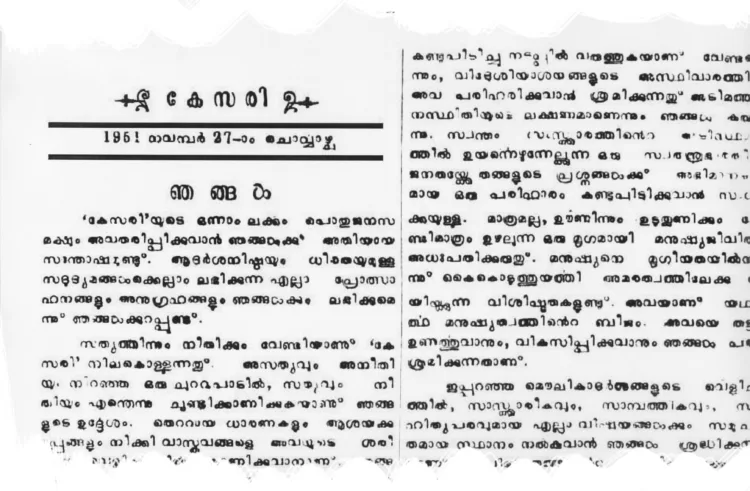 കേസരി
1951 നവമ്പർ 27-ാം ചൊവ്വാഴ്ച
ഞങ്ങൾ
'കേസരി'യുടെ ഒന്നാം ലക്കം പൊതുജനസ
മക്ഷം അവതരിപ്പിക്കുവാൻ ഞങ്ങൾക്കു് അതിയായ
സന്തോഷമുണ്ടു്. ആദർശനിഷ്ഠയും ധീരതയുമുള്ള
സദുദ്യമങ്ങൾക്കെല്ലാം ലഭിക്കുന്ന എല്ലാ പ്രോത്സാ
ഹനങ്ങളും അനുഗ്രഹങ്ങളും ഞങ്ങൾക്കും ലഭിക്കുമെ
ന്നു് ഞങ്ങൾക്കുറപ്പുണ്ടു്.
സത്യത്തിന്നും നീതിക്കും വേണ്ടിയാണു് 'കേ
സരി' നിലകൊള്ളുന്നതു്. അസത്യവും അനീതി
യും നിറഞ്ഞ ഒരു ചുറ്റുപാടിൽ, സത്യവും നീ
തിയും എന്തെന്നു ചൂണ്ടിക്കാണിക്കുകയാണു് ഞങ്ങ
ളുടെ ഉദ്ദേശം. തെറ്റായ ധാരണകളും ആശയക്കു
ഴപ്പങ്ങളും നീക്കി വാസ്തവങ്ങളെ അവയുടെ ശരി
കണ്ടുപിടിച്ചു നാട്ടിൽ വരുത്തുകയാണു് വേണ്ട
ന്നും, വിദേശീയാശയങ്ങളുടെ അസ്ഥിവാരത്തി
അവ പരിഹരിക്കുവാൻ ശ്രമിക്കുന്നതു് അടിമത്ത
നസ്ഥിതിയുടെ ലക്ഷണമാണെന്നും ഞങ്ങൾ കരു
ന്നു. സ്വന്തം സംസ്ക്കാരത്തിന്റെ
ത്തിൽ ഉയർന്നെഴുന്നേല്ക്കുന്ന ഒരു
ജനതയ്ക്കേ തങ്ങളുടെ പ്രശ്നങ്ങൾക്കു് അഭിമാന
മായ ഒരു പരിഹാരം കണ്ടുപിടിക്കുവാൻ
ക്കുയുള്ളൂ. മാത്രമല്ല, ഊണിന്നും ഉടുതുണിക്കും
ണ്ടിമാത്രം ഉഴലുന്ന ഒരു മൃഗമായി മനുഷ്യജീവിത
അധഃപതിക്കരുതു്. മനുഷ്യനെ മൃഗീയതയിൽനി
ന്നു് കൈകൊടുത്തുയർത്തി അമരത്വത്തിലേക്കു
യിക്കുന്ന വിശിഷ്ടതകളുണ്ടു്. അവയാണു് യഥാ
ർത്ഥ മനുഷ്യത്വത്തിൻറെ ബീജം. അവയെ തട്ടി
ഉണർത്തുവാനും, വികസിപ്പിക്കുവാനും ഞങ്ങൾ
ശ്രമിക്കുന്നതാണു്.
ഇപ്പറഞ്ഞ മൌലികാദർശങ്ങളുടെ വെളിച്ച
ത്തിൽ, സാംസ്ക്കാരികവും, സാമ്പത്തികവും,
ഹിത്യപരവുമായ എല്ലാ വിഷയങ്ങൾക്കും
തമായ സ്ഥാനം നൽകുവാൻ ഞങ്ങൾ ശ്രദ്ധിക്കുന്ന